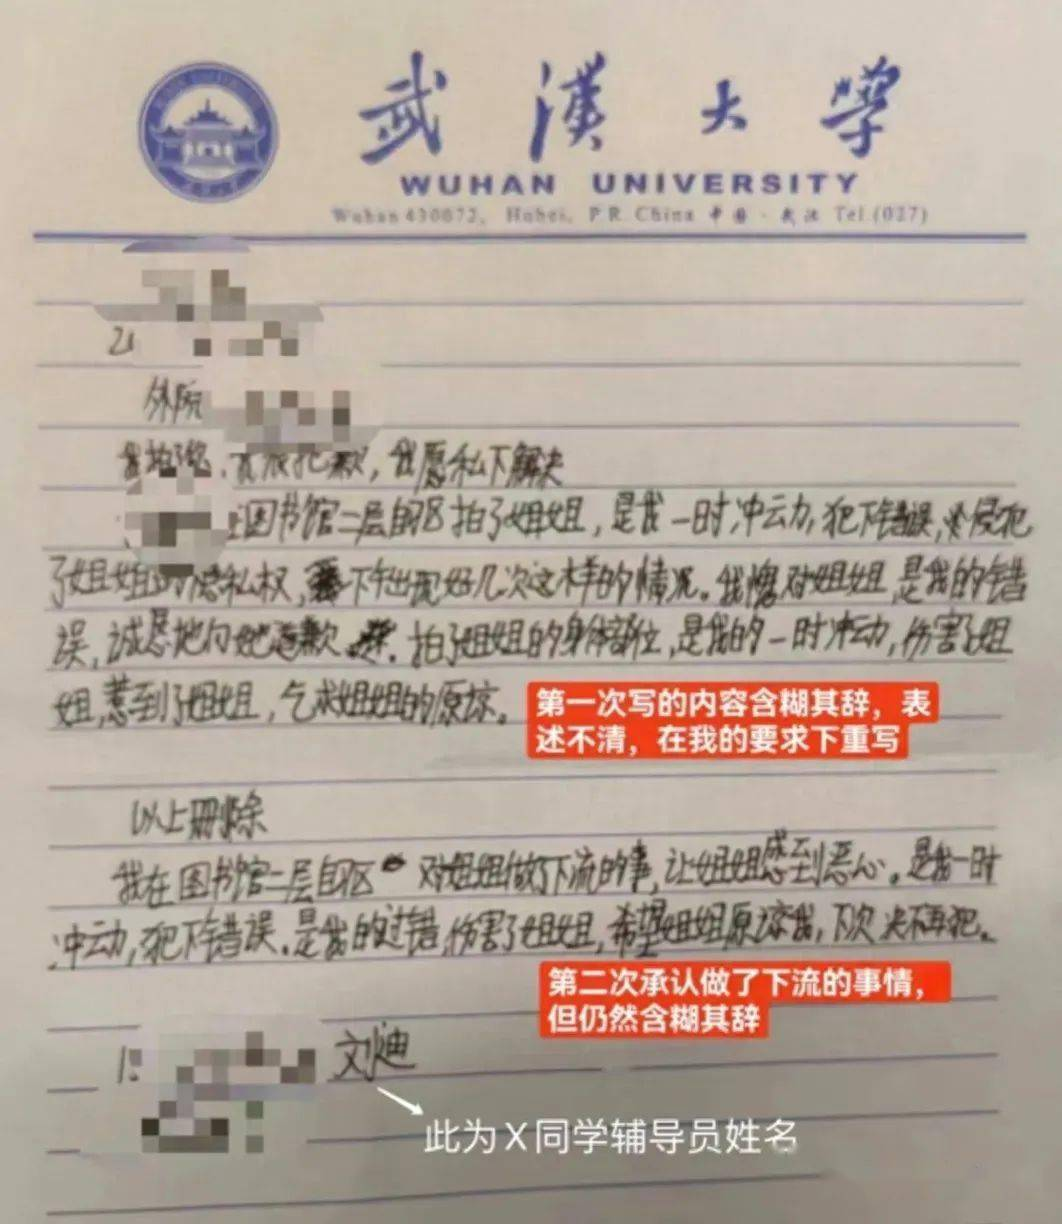 武漢大學
WUHAN UNIVERSITY
Wuhan 430072, Hubei, P R China 中国·武汉 Tel.(027)
外院
我拍了 ，我愿私下解决
在图书馆二层自习区拍了姐姐，是我一时冲动，犯下错误，侵犯
了姐姐的隐私权，下午出现好几次这样的情况。我愧对姐姐，是我的错
误，诚恳地向她道歉。拍了姐姐的身体部位，是我的一时冲动，伤害了姐
姐，惹到了姐姐，乞求姐姐的原谅。
第一次写的内容含糊其辞，表
述不清，在我的要求下重写
以上删除
我在图书馆二层自习区对姐姐做了下流的事，让姐姐感到恶心。是我一时
冲动，犯下错误。是我的过错，伤害了姐姐，希望姐姐原谅我，下次决不再犯。
第二次承认做了下流的事情，
但仍然含糊其辞
刘迪
此为X同学辅导员姓名